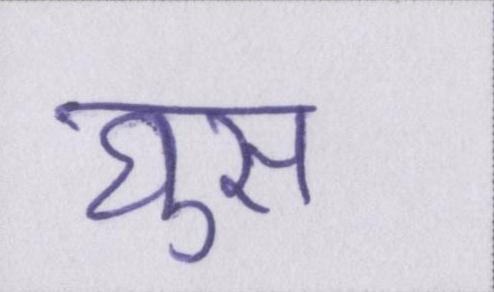 घुस